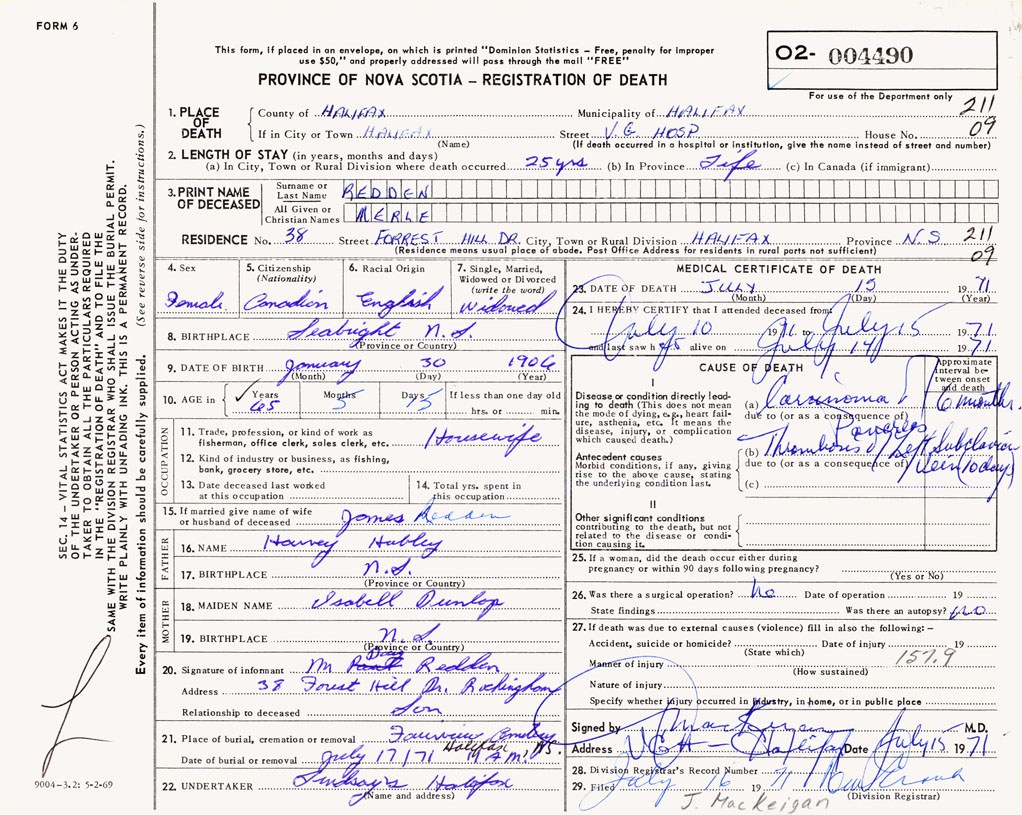 FORM 6
This form, if placed in an envelope, on which is printed "Dominion Statistics – Free, penalty for improper
use $50," and properly addressed will pass through the mail "FREE"
PROVINCE OF NOVA SCOTIA – REGISTRATION OF DEATH
02- 004490
For use of the Department only
211
09
1. PLACE OF DEATH
County of HALIFAX Municipality of HALIFAX
If in City or Town HALIFAX Street V. G. HOSP House No.
(Name) (If death occurred in a hospital or institution, give the name instead of street and number)
2. LENGTH OF STAY (in years, months and days)
(a) In City, Town or Rural Division where death occurred 25 yrs (b) In Province Life (c) In Canada (if immigrant)
3. PRINT NAME OF DECEASED
Surname or Last Name REDDEN
All Given or Christian Names MERLE
RESIDENCE No. 38 Street FORREST HILL DR. City, Town or Rural Division HALIFAX Province N.S
(Residence means usual place of abode. Post Office Address for residents in rural parts not sufficient)
211
09
4. Sex Female
5. Citizenship (Nationality) Canadian
6. Racial Origin English
7. Single, Married, Widowed or Divorced (write the word) Widowed
8. BIRTHPLACE Seabright N.S.
(Province or Country)
9. DATE OF BIRTH January 30 1906
(Month) (Day) (Year)
10. AGE in Years 65 Months 5 Days 15 If less than one day old
hrs. or min.
OCCUPATION
11. Trade, profession, or kind of work as
fisherman, office clerk, sales clerk, etc. Housewife
12. Kind of industry or business, as fishing,
bank, grocery store, etc.
13. Date deceased last worked
at this occupation
14. Total yrs. spent in
this occupation
15. If married give name of wife
or husband of deceased James Redden
FATHER
16. NAME Harvey Hubley
17. BIRTHPLACE N.S.
(Province or Country)
MOTHER
18. MAIDEN NAME Isabell Dunlop
19. BIRTHPLACE N.S
(Province or Country)
20. Signature of informant Redden
Address 38 Forest Hill Dr. Rockingham
Relationship to deceased Son
21. Place of burial, cremation or removal Fairview Cemetery
Halifax, NS
Date of burial or removal July 17/71 11 A.M.
22. UNDERTAKER Lindsay's Halifax
(Name and address)
MEDICAL CERTIFICATE OF DEATH
23. DATE OF DEATH JULY 15 1971
(Month) (Day) (Year)
24. I HEREBY CERTIFY that I attended deceased from
July 10 1971 to July 15 1971
and last saw h er alive on July 14 1971
CAUSE OF DEATH
Approximate interval between onset and death
I
Disease or condition directly lead-
ing to death (This does not mean
the mode of dying, e.g., heart fail-
ure, asthenia, etc. It means the
disease, injury, or complication
which caused death.)
(a) Carcinoma 6 months
due to (or as a consequence of)
Pancreas
Antecedent causes
Morbid conditions, if any, giving
rise to the above cause, stating
the underlying condition last.
(b) Thrombosis of Left Subclavian
due to (or as a consequence of) Vein (10 days)
(c)
II
Other significant conditions
contributing to the death, but not
related to the disease or condi-
tion causing it.
25. If a woman, did the death occur either during
pregnancy or within 90 days following pregnancy?
(Yes or No)
26. Was there a surgical operation? no Date of operation 19
State findings Was there an autopsy? no
27. If death was due to external causes (violence) fill in also the following: –
Accident, suicide or homicide? Date of injury 19
(State which)
157.9
Manner of injury
(How sustained)
Nature of injury
Specify whether injury occurred in industry, in home, or in public place
Signed by MacKeigan M.D.
Address VGH – Halifax Date July 15 1971
28. Division Registrar's Record Number
29. Filed July 16 1971
(Division Registrar)
J. MacKeigan
SEC. 14 – VITAL STATISTICS ACT MAKES IT THE DUTY
OF THE UNDERTAKER OR PERSON ACTING AS UNDER-
TAKER TO OBTAIN ALL THE PARTICULARS REQUIRED
IN THE "REGISTRATION OF DEATH" AND TO FILE THE
SAME WITH THE DIVISION REGISTRAR WHO SHALL ISSUE THE BURIAL PERMIT.
WRITE PLAINLY WITH UNFADING INK. THIS IS A PERMANENT RECORD.
Every item of information should be carefully supplied. (See reverse side for instructions.)
9004-3.2: 5-2-69